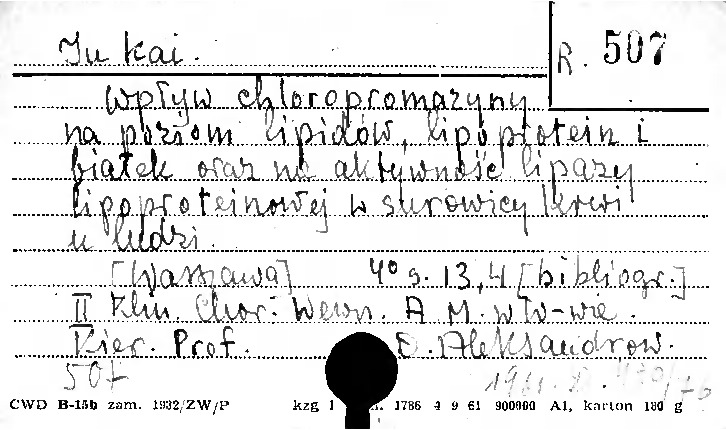 Ju Kai.
R. 507
Wpływ chloropromazyny
na poziom lipidów, lipoprotein i
białek oraz na aktywność lipazy
lipoproteinowej w surowicy krwi
u ludzi.
[Warszawa] 4° s. 13,4 [bibliogr.]
II Klin. Chor. Wewn. A. M. w W-wie.
Kier. Prof. D. Aleksandrow.
507
CWD B-15b zam. 1932/ZW/P kzg 1786 4 9 61 900000 A1, karton 180 g